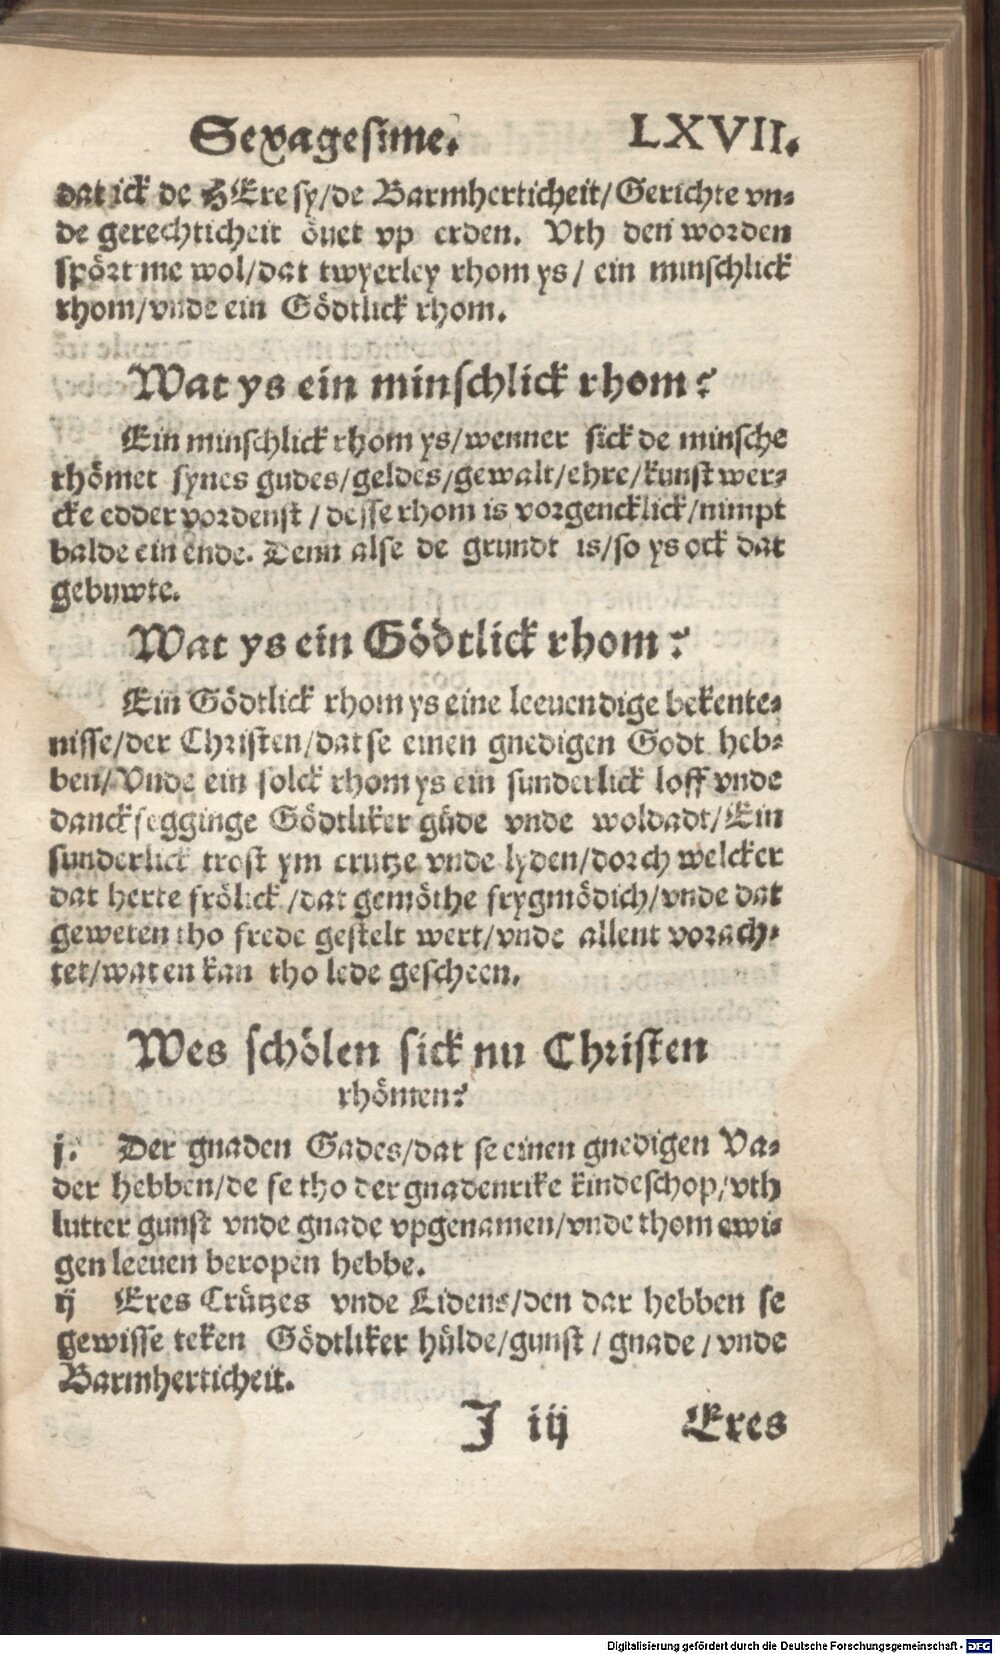 Sexagesime. LXVII.
dat ick de HEre sy/de Barmherticheit/Gerichte vn-
de gerechticheit öuet vp erden. Vth den worden
spört me wol/dat twyerley rhom ys/ ein minschlick
rhom/vnde ein Gödtlick rhom.
Wat ys ein minschlick rhom?
Ein minschlick rhom ys/wenner sick de minsche
rhömet synes gudes/geldes/gewalt/ehre/kunst wer-
cke edder vordenst/desse rhom is vorgencklick/nimpt
balde ein ende. Denn alse de grundt is/so ys ock dat
gebuwte.
Wat ys ein Gödtlick rhom?
Ein Gödtlick rhom ys eine leeuendige bekente-
nisse/der Christen/dat se einen gnedigen Godt heb-
ben/Vnde ein solck rhom ys ein sunderlick loff vnde
danck segginge Gödtliker güde vnde woldadt/Ein
sunderlick trost ym crutze vnde lyden/dorch welcker
dat herte frölick/dat gemöthe frygmödich/vnde dat
geweten tho frede gestelt wert/vnde allent vorach-
tet/wat en kan tho lede gescheen.
Wes schölen sick nu Christen
rhömen?
j. Der gnaden Gades/dat se einen gnedigen Va-
der hebben/de se tho der gnadenrike kindeschop/vth
lutter gunst vnde gnade vpgenamen/vnde thom ewi-
gen leeuen beropen hebbe.
ij Eres Crützes vnde Lidens/den dar hebben se
gewisse teken Gödtliker hülde/gunst/gnade/vnde
Barmherticheit.
J iij Eres
Digitalisierung gefördert durch die Deutsche Forschungsgemeinschaft - DFG